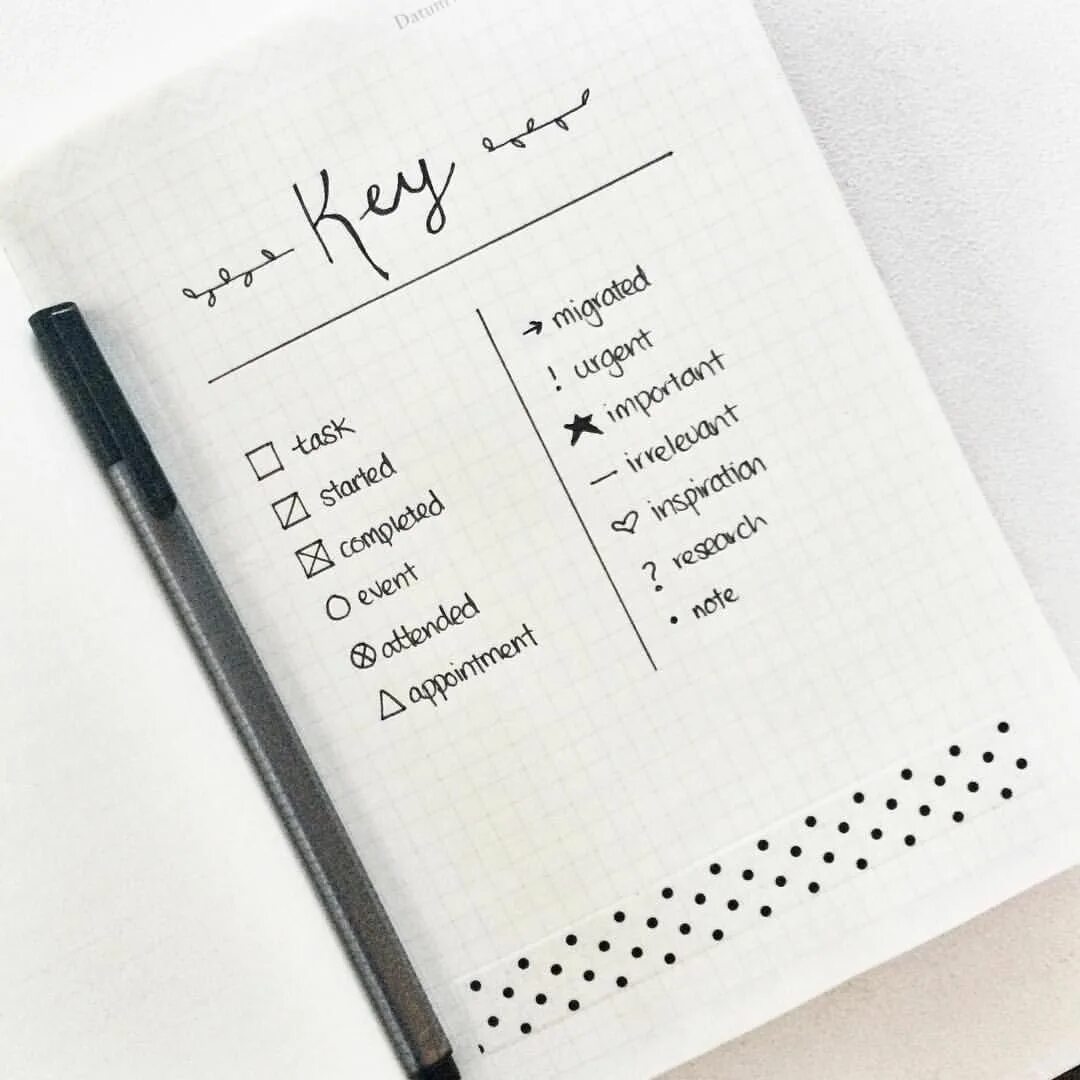 Datum
Key
☐ task
⧄ started
☒ completed
○ event
⊗ attended
△ appointment
→ migrated
! urgent
★ important
— irrelevant
♡ inspiration
? research
• note